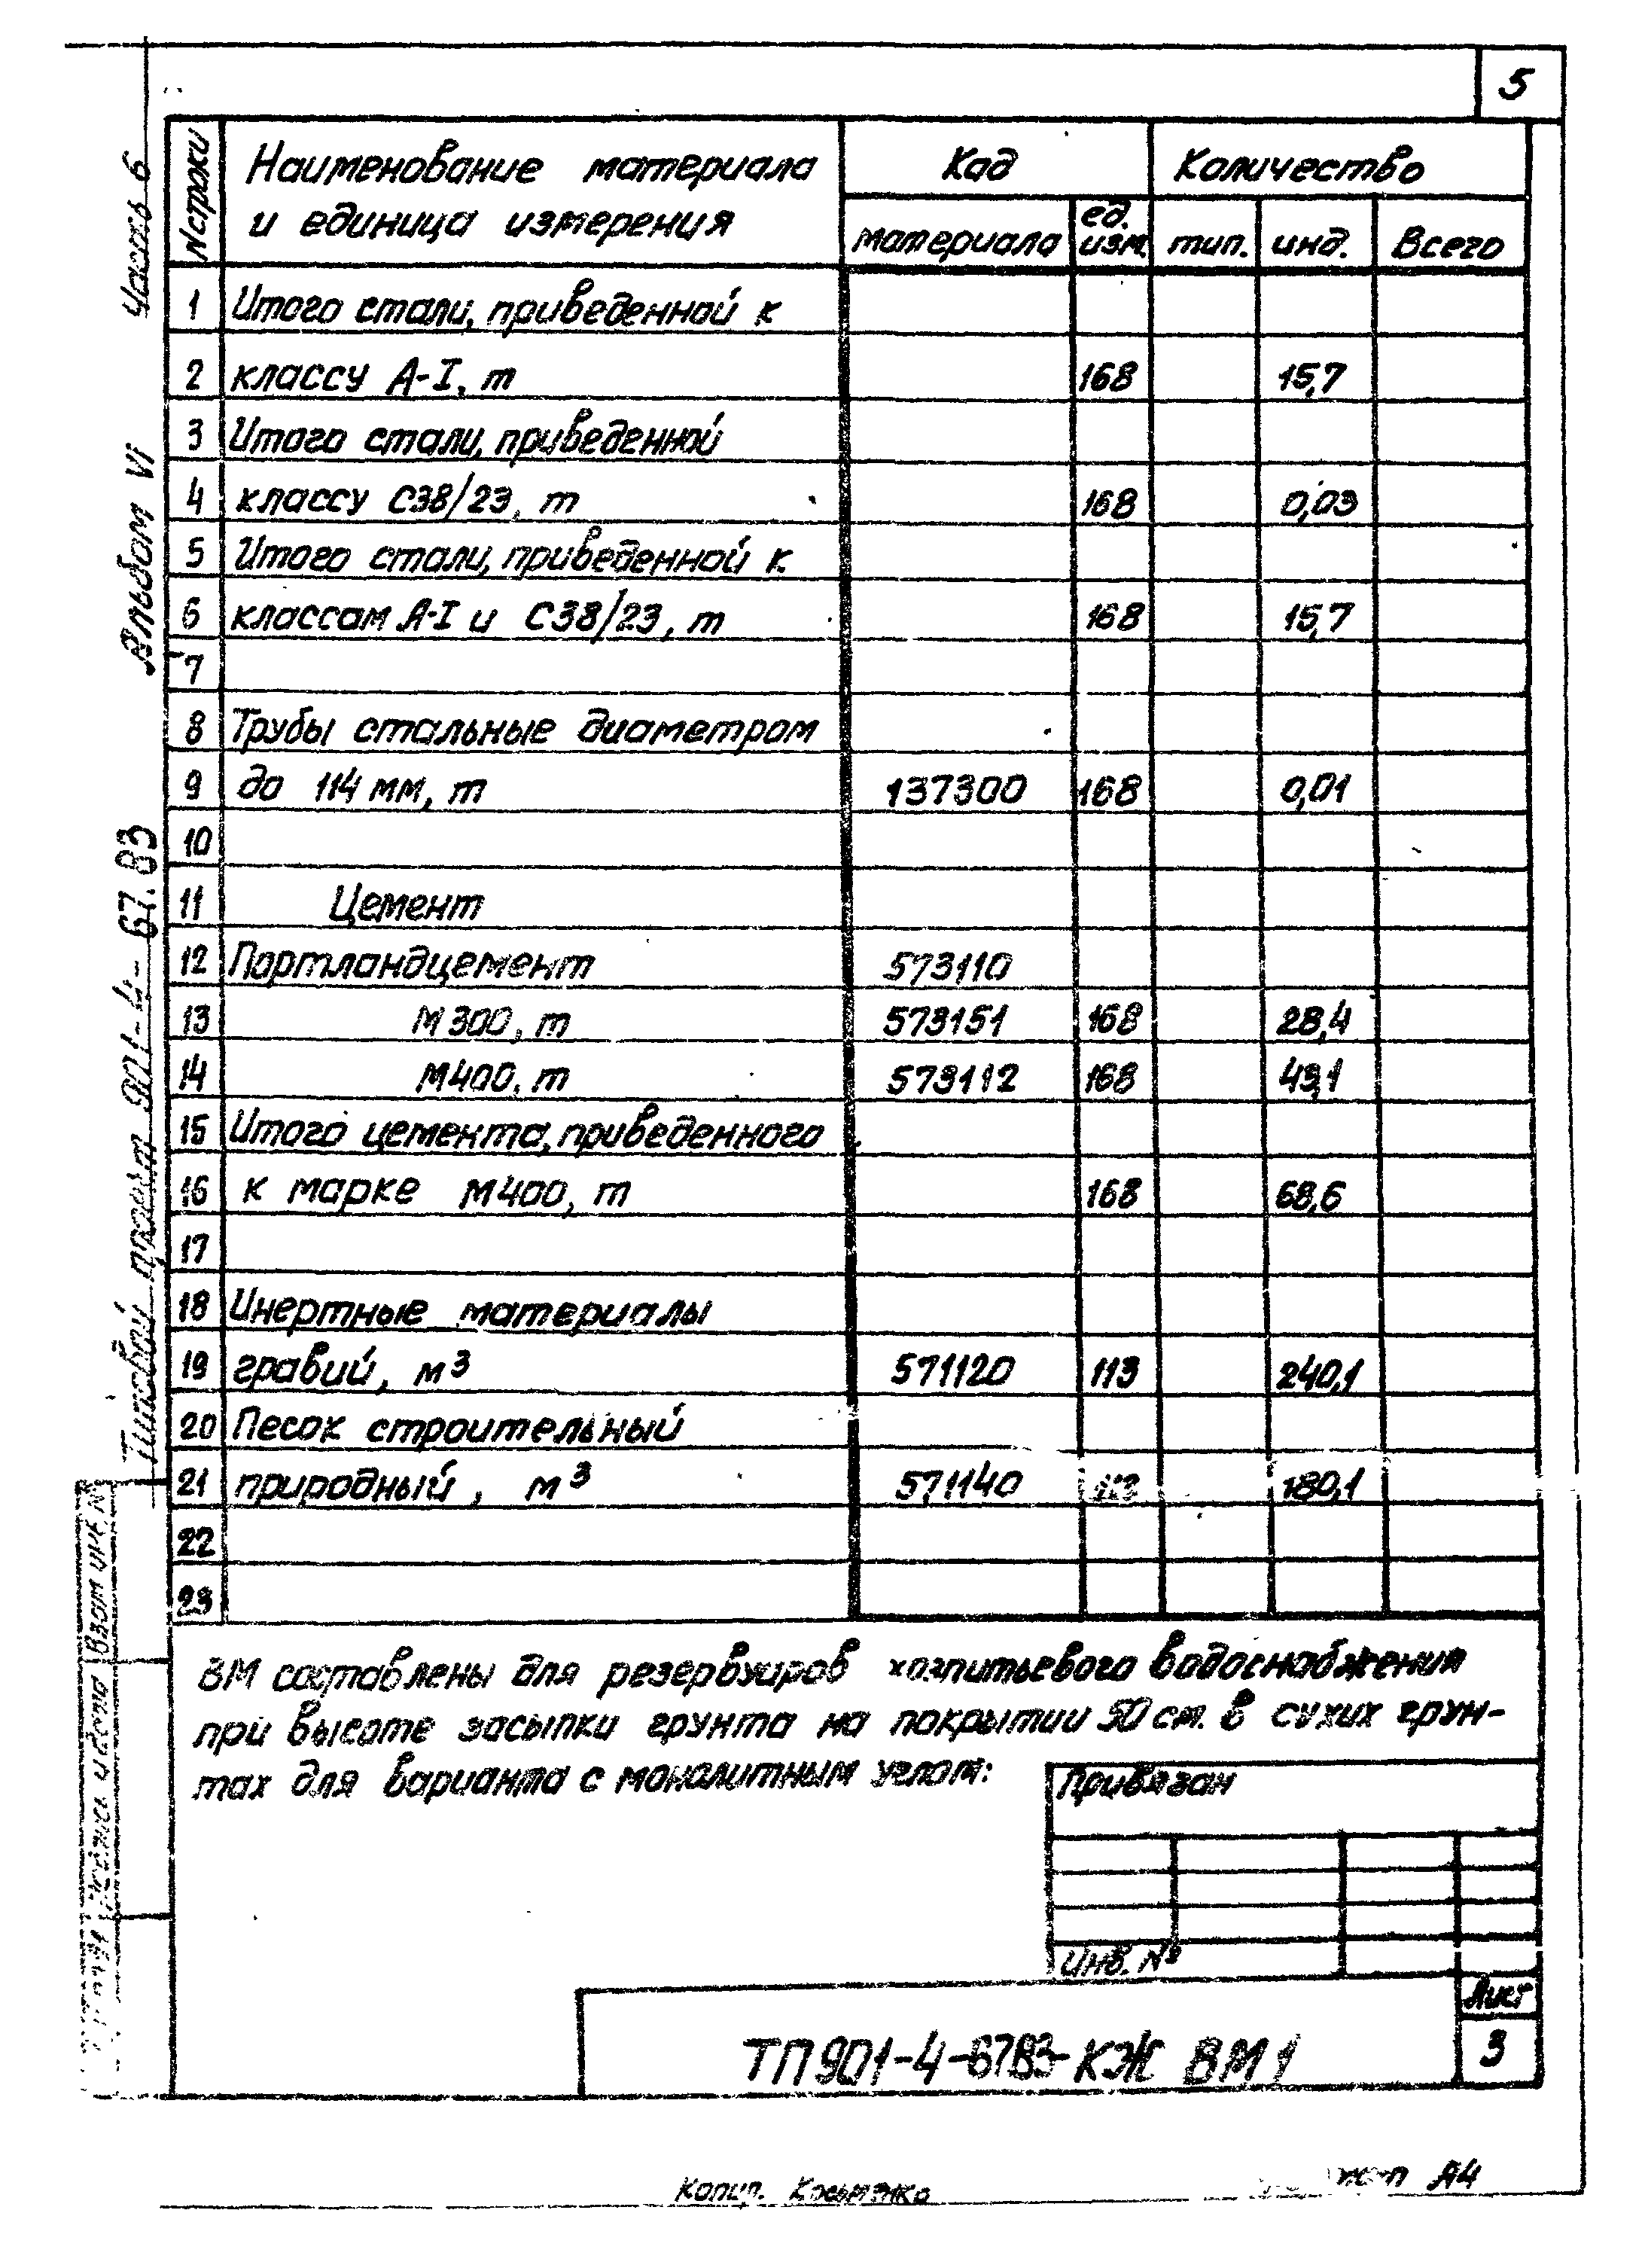 5
N строки
Наименование материала
и единица измерения
Код
материала
ед.
изм.
Количество
тип.
инд.
Всего
1 Итого стали, приведенной к
2 классу А-I, т 168 15,7
3 Итого стали, приведенной
4 классу С38/23, т 168 0,03
5 Итого стали, приведенной к
6 классам А-I и С38/23, т 168 15,7
7
8 Трубы стальные диаметром
9 до 114 мм, т 137300 168 0,01
10
11 Цемент
12 Портландцемент 573110
13 М300, т 573151 168 28,4
14 М400, т 573112 168 43,1
15 Итого цемента, приведенного
16 к марке М400, т 168 68,6
17
18 Инертные материалы
19 гравий, м3 571120 113 240,1
20 Песок строительный
21 природный, м3 571140 113 180,1
22
23
ВМ составлены для резервуаров хозпитьевого водоснабжения
при высоте засыпки грунта на покрытии 50 см. в сухих грун-
тах для варианта с монолитным углом:
Привязан
Инв. №
ТП 901-4-67.83-КЖ ВМ1
Лист
3
Часть 6
Альбом VI
Типовой проект 901-4-67.83
Взам инв N
Копир.
А4